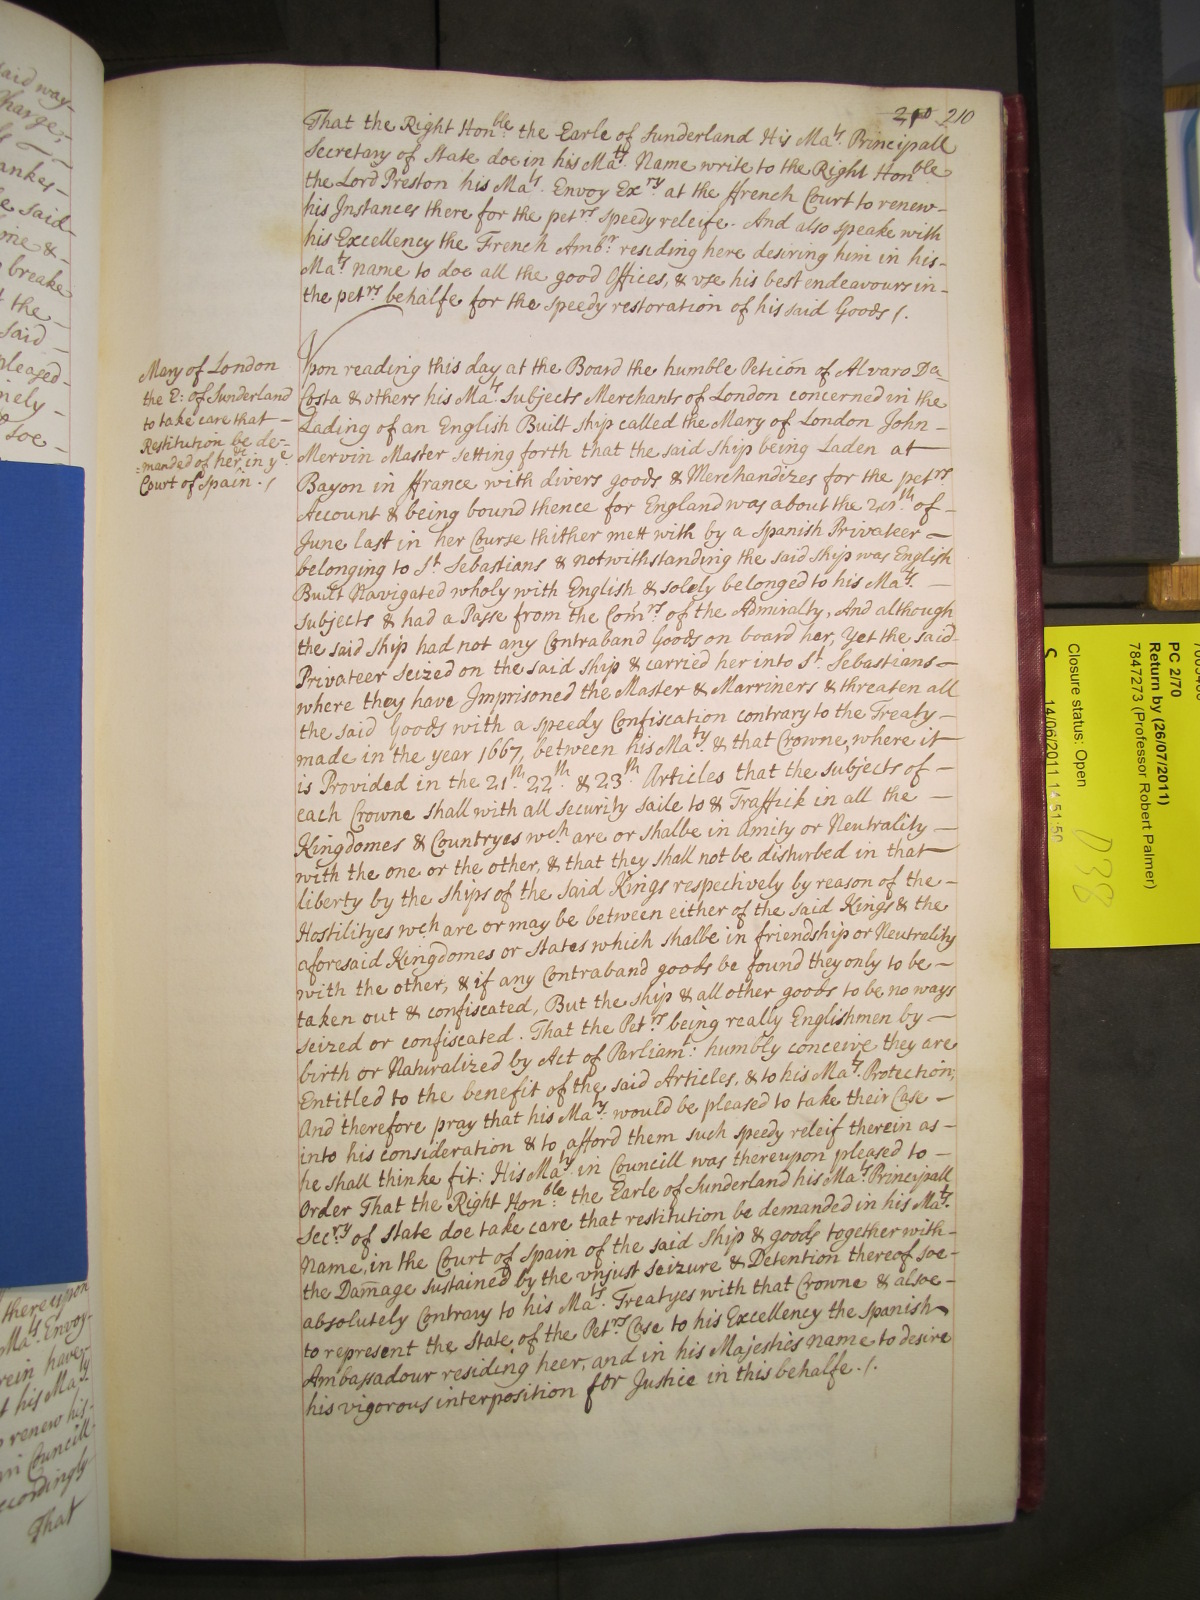 210 210
That the Right Honble the Earle of Sunderland His Mats Principall
Secretary of State doe in his Mats Name write to the Right Honble
the Lord Preston his Mats Envoy Exry at the ffrench Court to renew
his Instances there for the petrs speedy releife. And also speake with
his Excellency the French Ambr residing here desiring him in his
Mats name to doe all the good Offices, & use his best endeavours in
the petrs behalfe for the speedy restoration of his said Goods /.
Mary of London
the E: of Sunderland
to take care that
Restitution be de=
=manded of her &c in ye
Court of Spain . /
Vpon reading this day at the Board the humble Peticon of Alvaro Da
Costa & others his Mats Subjects Merchants of London concerned in the
Lading of an English Built ship called the Mary of London John
Mervin Master setting forth that the said ship being Laden at
Bayon in ffrance with divers goods & Merchandizes for the petrs
Account & being bound thence for England was about the of
June last in her Course thither mett with by a Spanish Privateer
belonging to St Sebastians & notwithstanding the said ship was English
Built Navigated wholy with English & solely belonged to his Mats
subjects & had a Passe from the Comrs of the Admiralty, And although
the said ship had not any Contraband Goods on board her, Yet the said
Privateer seized on the said ship & carried her into St Sebastians
where they have Imprisoned the Master & Marriners & threaten all
the said Goods with a speedy Confiscation contrary to the Treaty
made in the year 1667, between his Maty & that Crowne, where it
is Provided in the 21th 22th & 23th Articles that the subjects of
each Crowne shall with all security saile to & Traffick in all the
Kingdomes & Countryes wch are or shalbe in Amity or Neutrality
with the one or the other, & that they shall not be disturbed in that
liberty by the ships of the said Kings respectively by reason of the
Hostilityes wch are or may be between either of the said Kings & the
aforesaid Kingdomes or States which shalbe in friendship or Neutrality
with the other, & if any Contraband goods be found they only to be
taken out & confiscated, But the ship & all other goods to be no ways
seized or confiscated. That the Petrs being really Englishmen by
birth or Naturalized by Act of Parliamt: humbly conceive they are
Entitled to the benefit of the said Articles, & to his Mats Protection;
And therefore pray that his Maty would be pleased to take their Case
into his consideration & to afford them such speedy releif therein as
he shall thinke fit: His Maty in Councill was thereupon pleased to
Order That the Right Honble the Earle of Sunderland his Mats Principall
Secry of State doe take care that restitution be demanded in his Mats
Name, in the Court of Spain of the said Ship & goods together with
the Damage sustained by the unjust seizure & Detention thereof soe
absolutely Contrary to his Mats Treatyes with that Crowne & alsoe
to represent the State of the Petrs Case to his Excellency the Spanish
Ambassadour residing heer, and in his Majesties name to desire
his vigorous interposition for Justice in this behalfe . /.
said way
Charge;
said
breake
the
said
pleased
soe
thereupon
Mats Envoy
have
his Maty
renew his
in Councill
accordingly
That
PC 2/70
Return by (26/07/2011)
7847273 (Professor Robert Palmer)
Closure status: Open
14/06/2011 14:51:50
S
D38